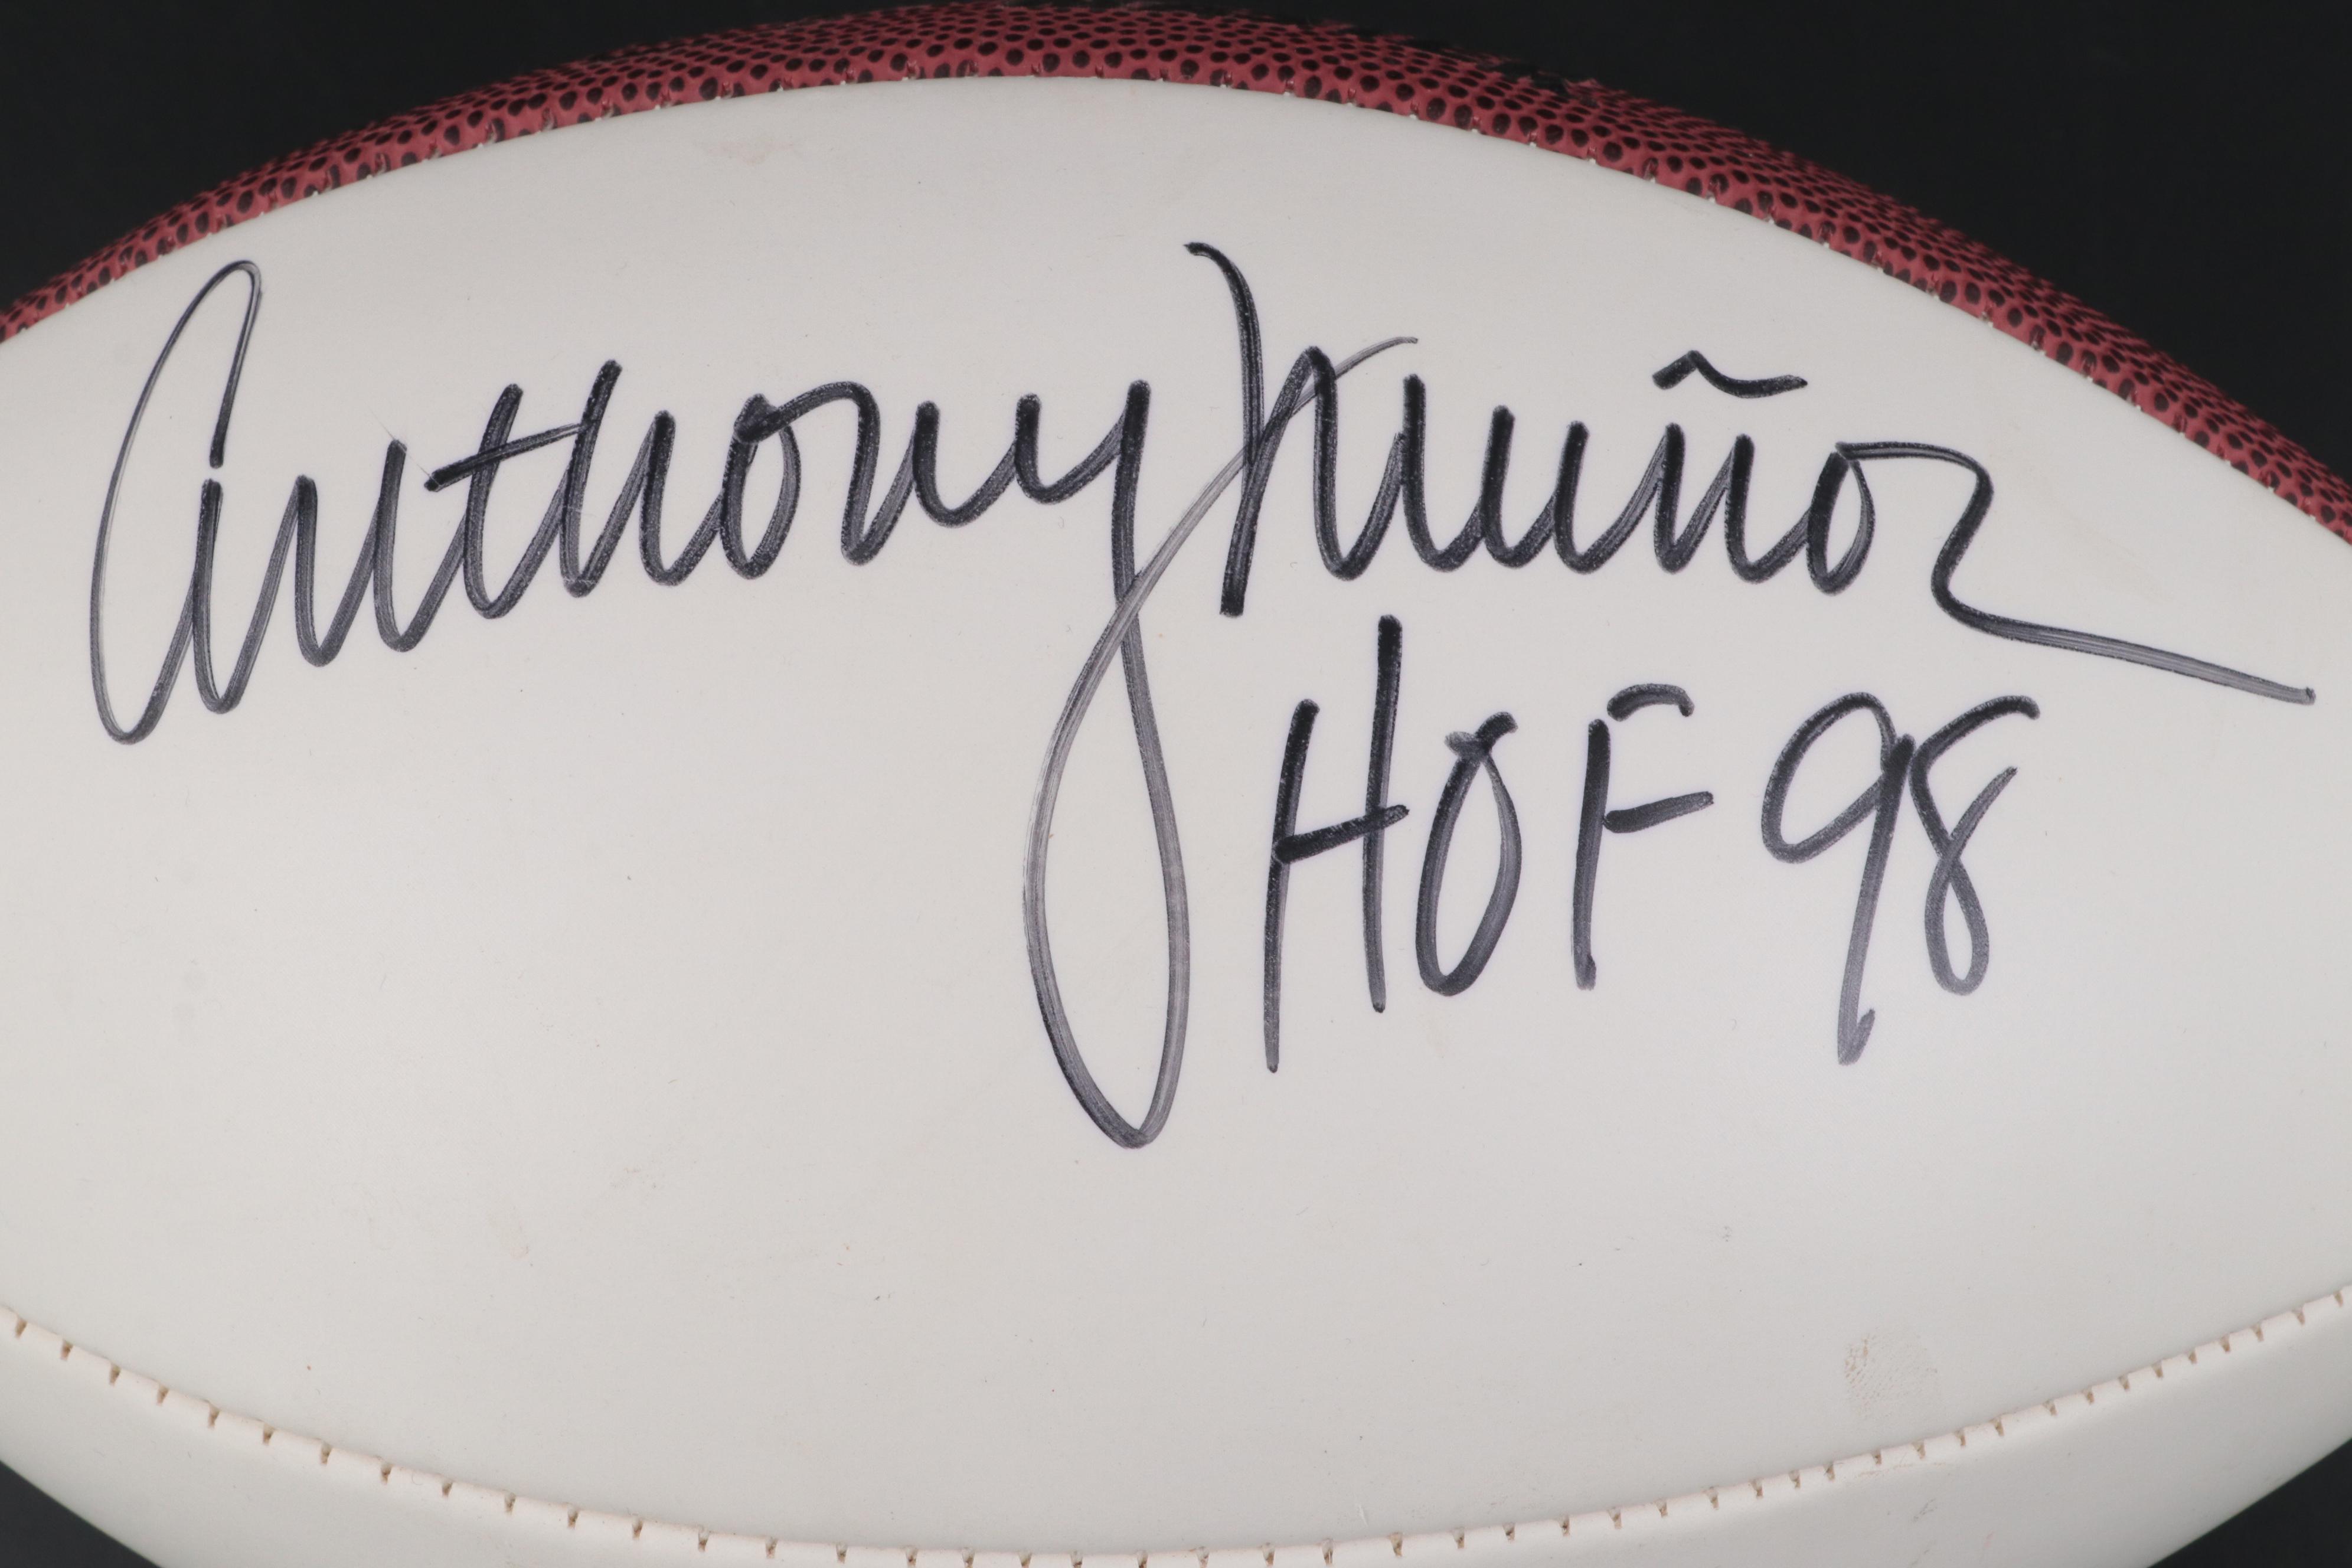 Anthony Muñoz
HOF 98